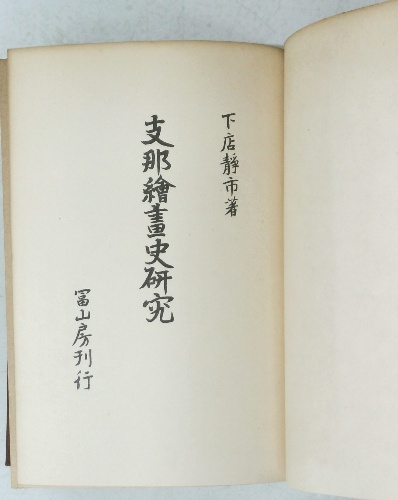 下店靜市著
支那繪畫史研究
冨山房刊行